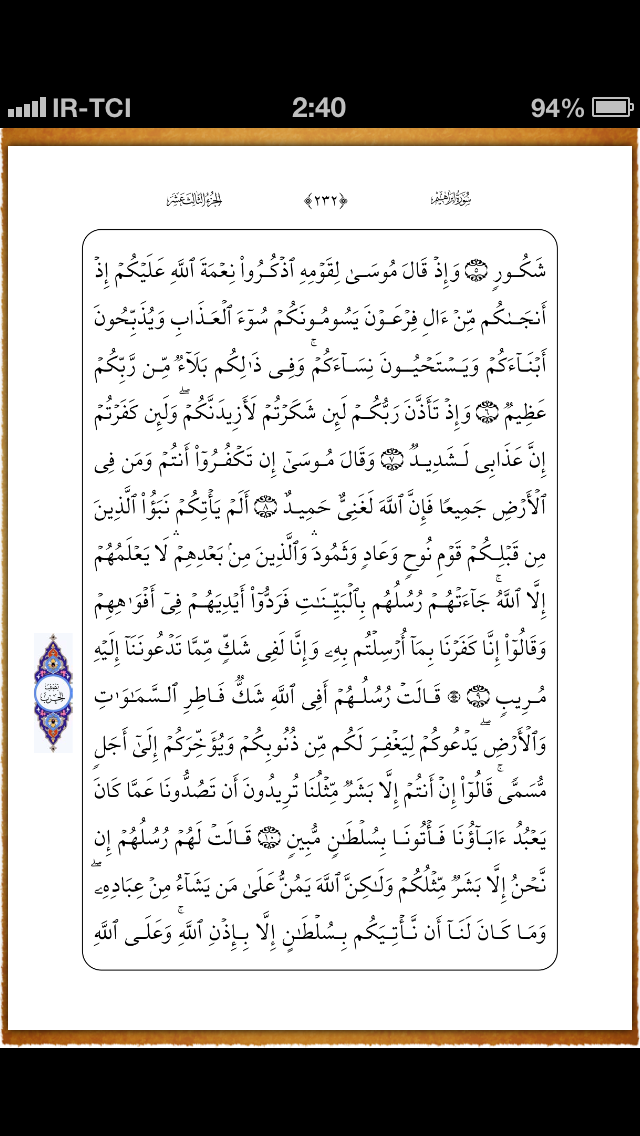 IR-TCI 2:40 94%
سُورَةُ إِبْرَاهِيم ﴿٢٣٢﴾ الجُزْءُ الثَّالِثَ عَشَر
شَكُورٍ ۝٥ وَإِذۡ قَالَ مُوسَىٰ لِقَوۡمِهِ ٱذۡكُرُواْ نِعۡمَةَ ٱللَّهِ عَلَيۡكُمۡ إِذۡ
أَنجَىٰكُم مِّنۡ ءَالِ فِرۡعَوۡنَ يَسُومُونَكُمۡ سُوٓءَ ٱلۡعَذَابِ وَيُذَبِّحُونَ
أَبۡنَآءَكُمۡ وَيَسۡتَحۡيُونَ نِسَآءَكُمۡۚ وَفِى ذَٰلِكُم بَلَآءٌ مِّن رَّبِّكُمۡ
عَظِيمٌ ۝٦ وَإِذۡ تَأَذَّنَ رَبُّكُمۡ لَئِن شَكَرۡتُمۡ لَأَزِيدَنَّكُمۡۖ وَلَئِن كَفَرۡتُمۡ
إِنَّ عَذَابِى لَشَدِيدٌ ۝٧ وَقَالَ مُوسَىٰٓ إِن تَكۡفُرُوٓاْ أَنتُمۡ وَمَن فِى
ٱلۡأَرۡضِ جَمِيعًا فَإِنَّ ٱللَّهَ لَغَنِىٌّ حَمِيدٌ ۝٨ أَلَمۡ يَأۡتِكُمۡ نَبَؤُاْ ٱلَّذِينَ
مِن قَبۡلِكُمۡ قَوۡمِ نُوحٍ وَعَادٍ وَثَمُودَۛ وَٱلَّذِينَ مِنۢ بَعۡدِهِمۡۛ لَا يَعۡلَمُهُمۡ
إِلَّا ٱللَّهُۚ جَآءَتۡهُمۡ رُسُلُهُم بِٱلۡبَيِّنَٰتِ فَرَدُّوٓاْ أَيۡدِيَهُمۡ فِىٓ أَفۡوَٰهِهِمۡ
وَقَالُوٓاْ إِنَّا كَفَرۡنَا بِمَآ أُرۡسِلۡتُم بِهِۦ وَإِنَّا لَفِى شَكٍّ مِّمَّا تَدۡعُونَنَآ إِلَيۡهِ
مُرِيبٍ ۝٩ ۞ قَالَتۡ رُسُلُهُمۡ أَفِى ٱللَّهِ شَكٌّ فَاطِرِ ٱلسَّمَٰوَٰتِ
نِصۡفُ الحِزۡب
وَٱلۡأَرۡضِۖ يَدۡعُوكُمۡ لِيَغۡفِرَ لَكُم مِّن ذُنُوبِكُمۡ وَيُؤَخِّرَكُمۡ إِلَىٰٓ أَجَلٍ
مُّسَمًّىۚ قَالُوٓاْ إِنۡ أَنتُمۡ إِلَّا بَشَرٌ مِّثۡلُنَا تُرِيدُونَ أَن تَصُدُّونَا عَمَّا كَانَ
يَعۡبُدُ ءَابَآؤُنَا فَأۡتُونَا بِسُلۡطَٰنٍ مُّبِينٍ ۝١٠ قَالَتۡ لَهُمۡ رُسُلُهُمۡ إِن
نَّحۡنُ إِلَّا بَشَرٌ مِّثۡلُكُمۡ وَلَٰكِنَّ ٱللَّهَ يَمُنُّ عَلَىٰ مَن يَشَآءُ مِنۡ عِبَادِهِۦۖ
وَمَا كَانَ لَنَآ أَن نَّأۡتِيَكُم بِسُلۡطَٰنٍ إِلَّا بِإِذۡنِ ٱللَّهِۚ وَعَلَى ٱللَّهِ